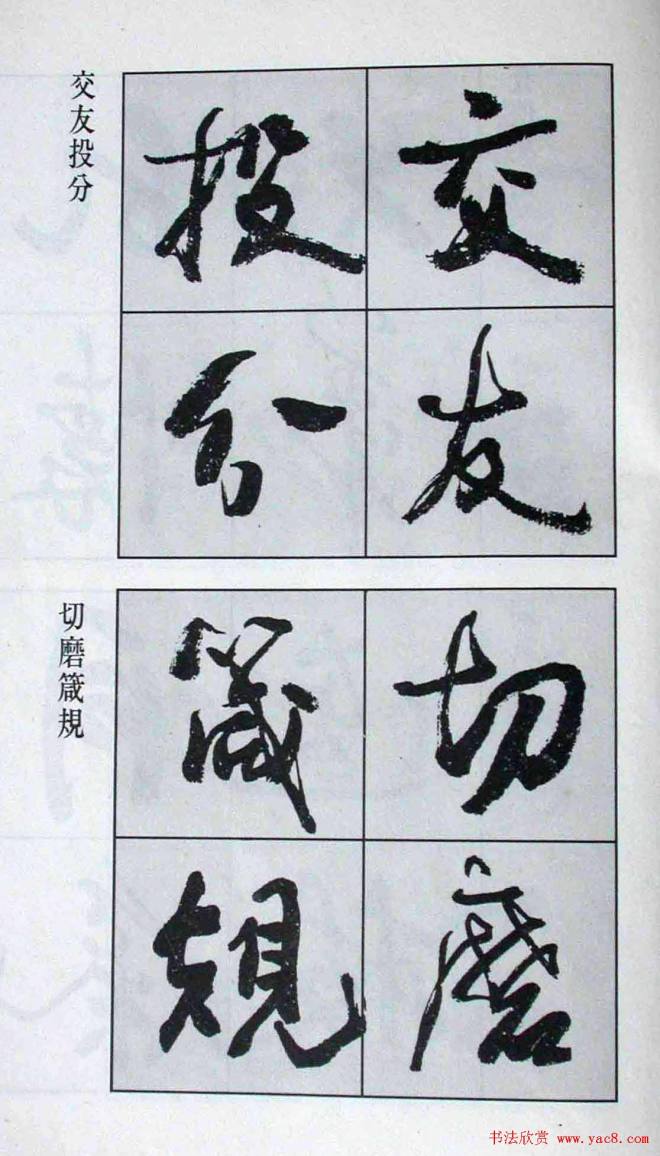 交友投分
交友
投分
切磨箴規
切磨
箴規
书法欣赏 www.yac8.com